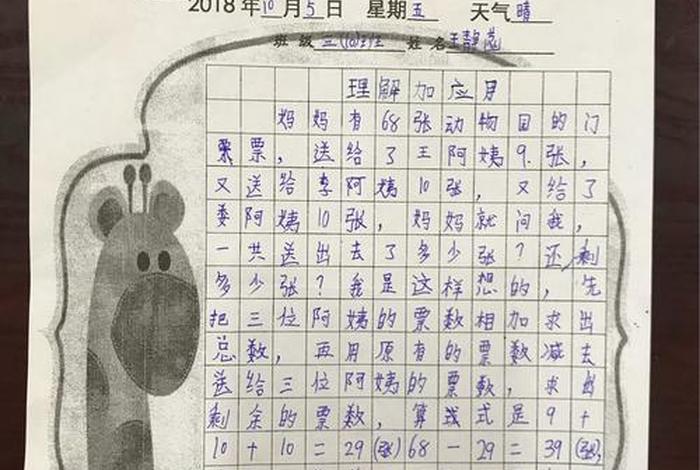 2018年10月5日 星期五 天气晴
班级三(10)班 姓名王静蕊
理解加应用
妈妈有68张动物园的门
票票，送给了王阿姨9.张，
又送给李阿姨10张，又给了
娄阿姨10张，妈妈就问我，
一共送出去了多少张？还剩
多少张？我是这样想的，先
把三位阿姨的票数相加求出
总数，再用原有的票数减去
送给三位阿姨的票数，求出
剩余的票数，算式是9+
10+10=29(张)68-29=39(张)，